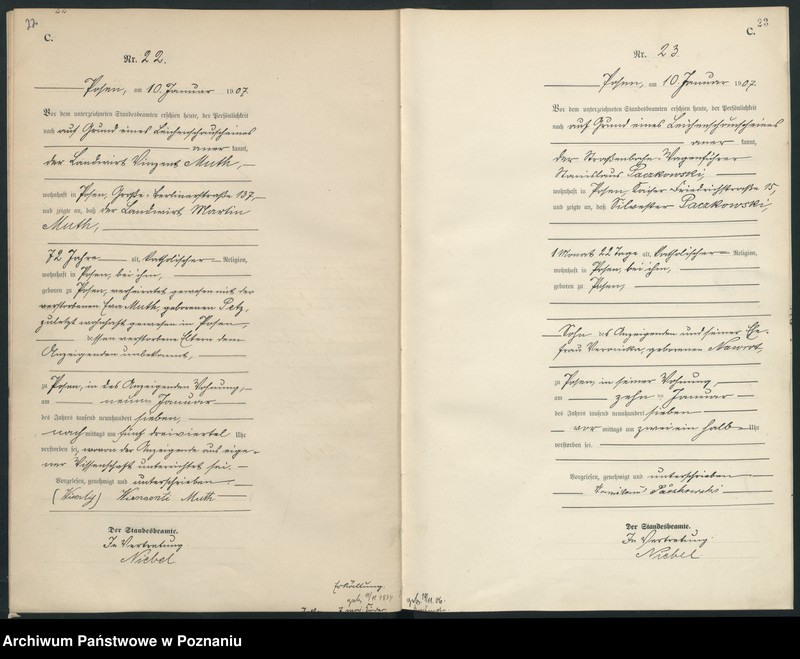 22
C.
Nr. 22.
Posen, am 10 Januar 1907.
Vor dem unterzeichneten Standesbeamten erschien heute, der Persönlichkeit
nach auf Grund eines Leichenschauscheines
aner kannt,
der Landwirt Vinzent Muth,
wohnhaft in Posen, Große Berlinerstraße 137,
und zeigte an, daß der Landwirt Martin
Muth,
72 Jahre alt, katholischer Religion,
wohnhaft in Posen, bei ihm,
geboren zu Posen, verheiratet gewesen mit der
verstorbenen Eva Muth, geborenen Petz,
zuletzt wohnhaft gewesen in Posen,
dessen verstorbene Eltern dem
Anzeigenden unbekannt,
zu Posen, in des Anzeigenden Wohnung,
am neunten Januar
des Jahres tausend neunhundert sieben,
nach mittags um fünf dreiviertel Uhr
verstorben sei, wovon der Anzeigende aus eige-
ner Wissenschaft unterrichtet sei.
Vorgelesen, genehmigt und unterschrieben
Muth
Der Standesbeamte.
In Vertretung
Niebel
Erkältung.
23
C.
Nr. 23
Posen, am 10 Januar 1907.
Vor dem unterzeichneten Standesbeamten erschien heute, der Persönlichkeit
nach auf Grund eines Leichenschauscheines
aner kannt,
der Straßenbahn-Wagenführer
Stanislaus Paczkowski,
wohnhaft in Posen, Kaiser Friedrichstraße 15,
und zeigte an, daß Silvester Paczkowski,
1 Monat 22 Tage alt, katholischer Religion,
wohnhaft in Posen, bei ihm,
geboren zu Posen,
Sohn des Anzeigenden und seiner Ehe-
frau Veronika, geborenen Nawrot,
zu Posen, in seiner Wohnung,
am zehnten Januar
des Jahres tausend neunhundert sieben
vor mittags um zwei ein halb Uhr
verstorben sei.
Vorgelesen, genehmigt und unterschrieben
Der Standesbeamte.
In Vertretung
Niebel
Archiwum Państwowe w Poznaniu